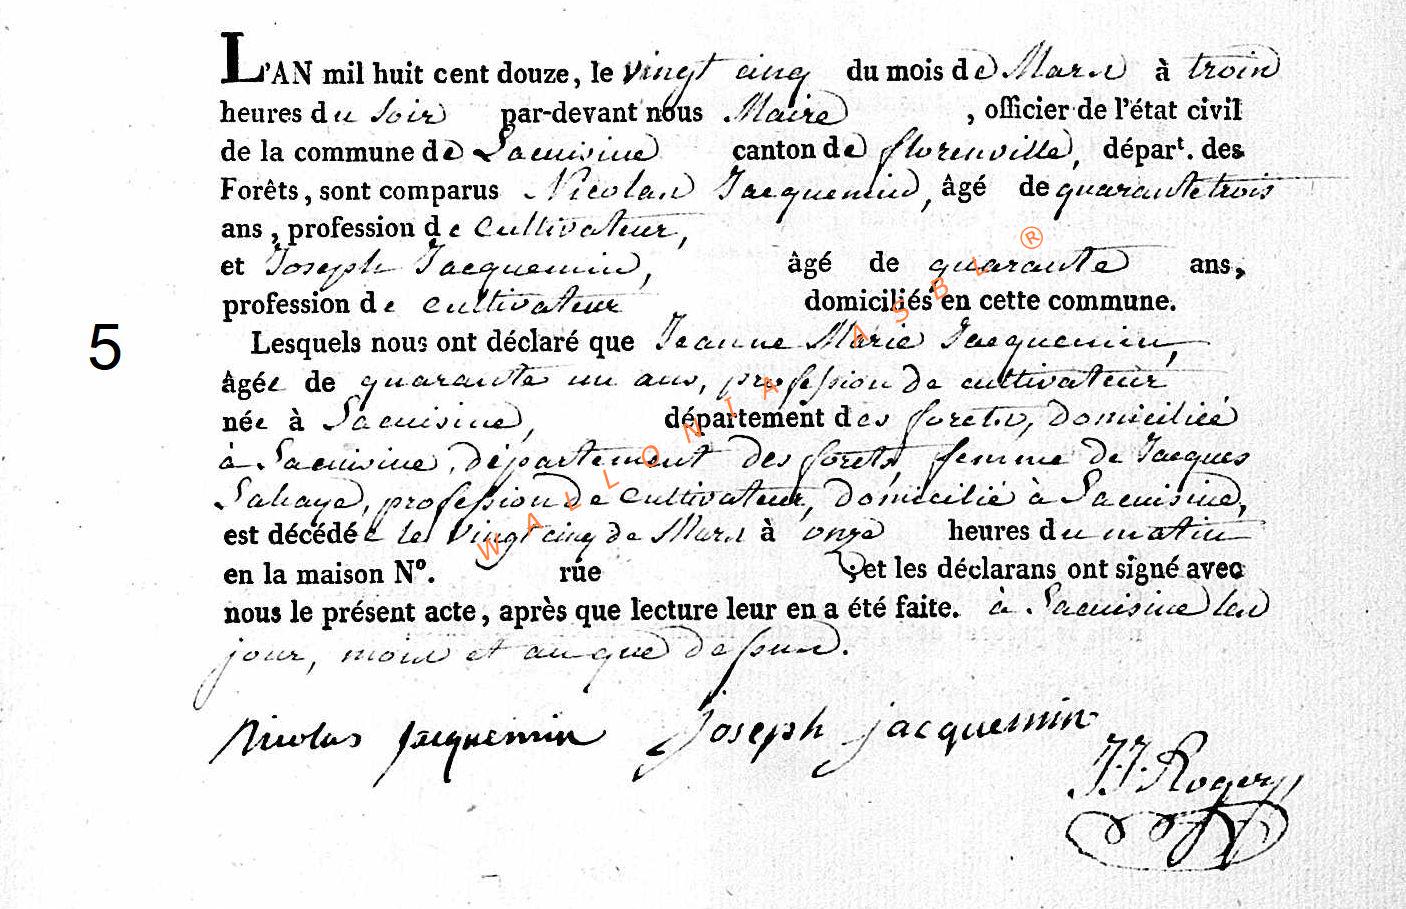 L'AN mil huit cent douze, le vingt cinq du mois de Mars à trois
heures du soir par-devant nous Maire , officier de l'état civil
de la commune de Lacuisine canton de florenville, départ. des
Forêts, sont comparus Nicolas Jacquemin, âgé de quarante trois
ans, profession de cultivateur,
et Joseph Jacquemin, âgé de quarante ans,
profession de cultivateur domiciliés en cette commune.
5
Lesquels nous ont déclaré que Jeanne Marie Jacquemin,
âgée de quarante un ans, profession de cultivateur
née à Lacuisine, département des forets, domiciliée
à Lacuisine, département des forets, femme de Jacques
Lahaye, profession de cultivateur, domicilié à Lacuisine,
est décédée le vingt cinq de Mars à onze heures du matin
en la maison Nº. rue ; et les déclarans ont signé avec
nous le présent acte, après que lecture leur en a été faite. à Lacuisine les
jour, mois et an que dessus.
Nicolas Jacquemin Joseph jacquemin
J. J. Rogery
WALLONIA ASBL ®